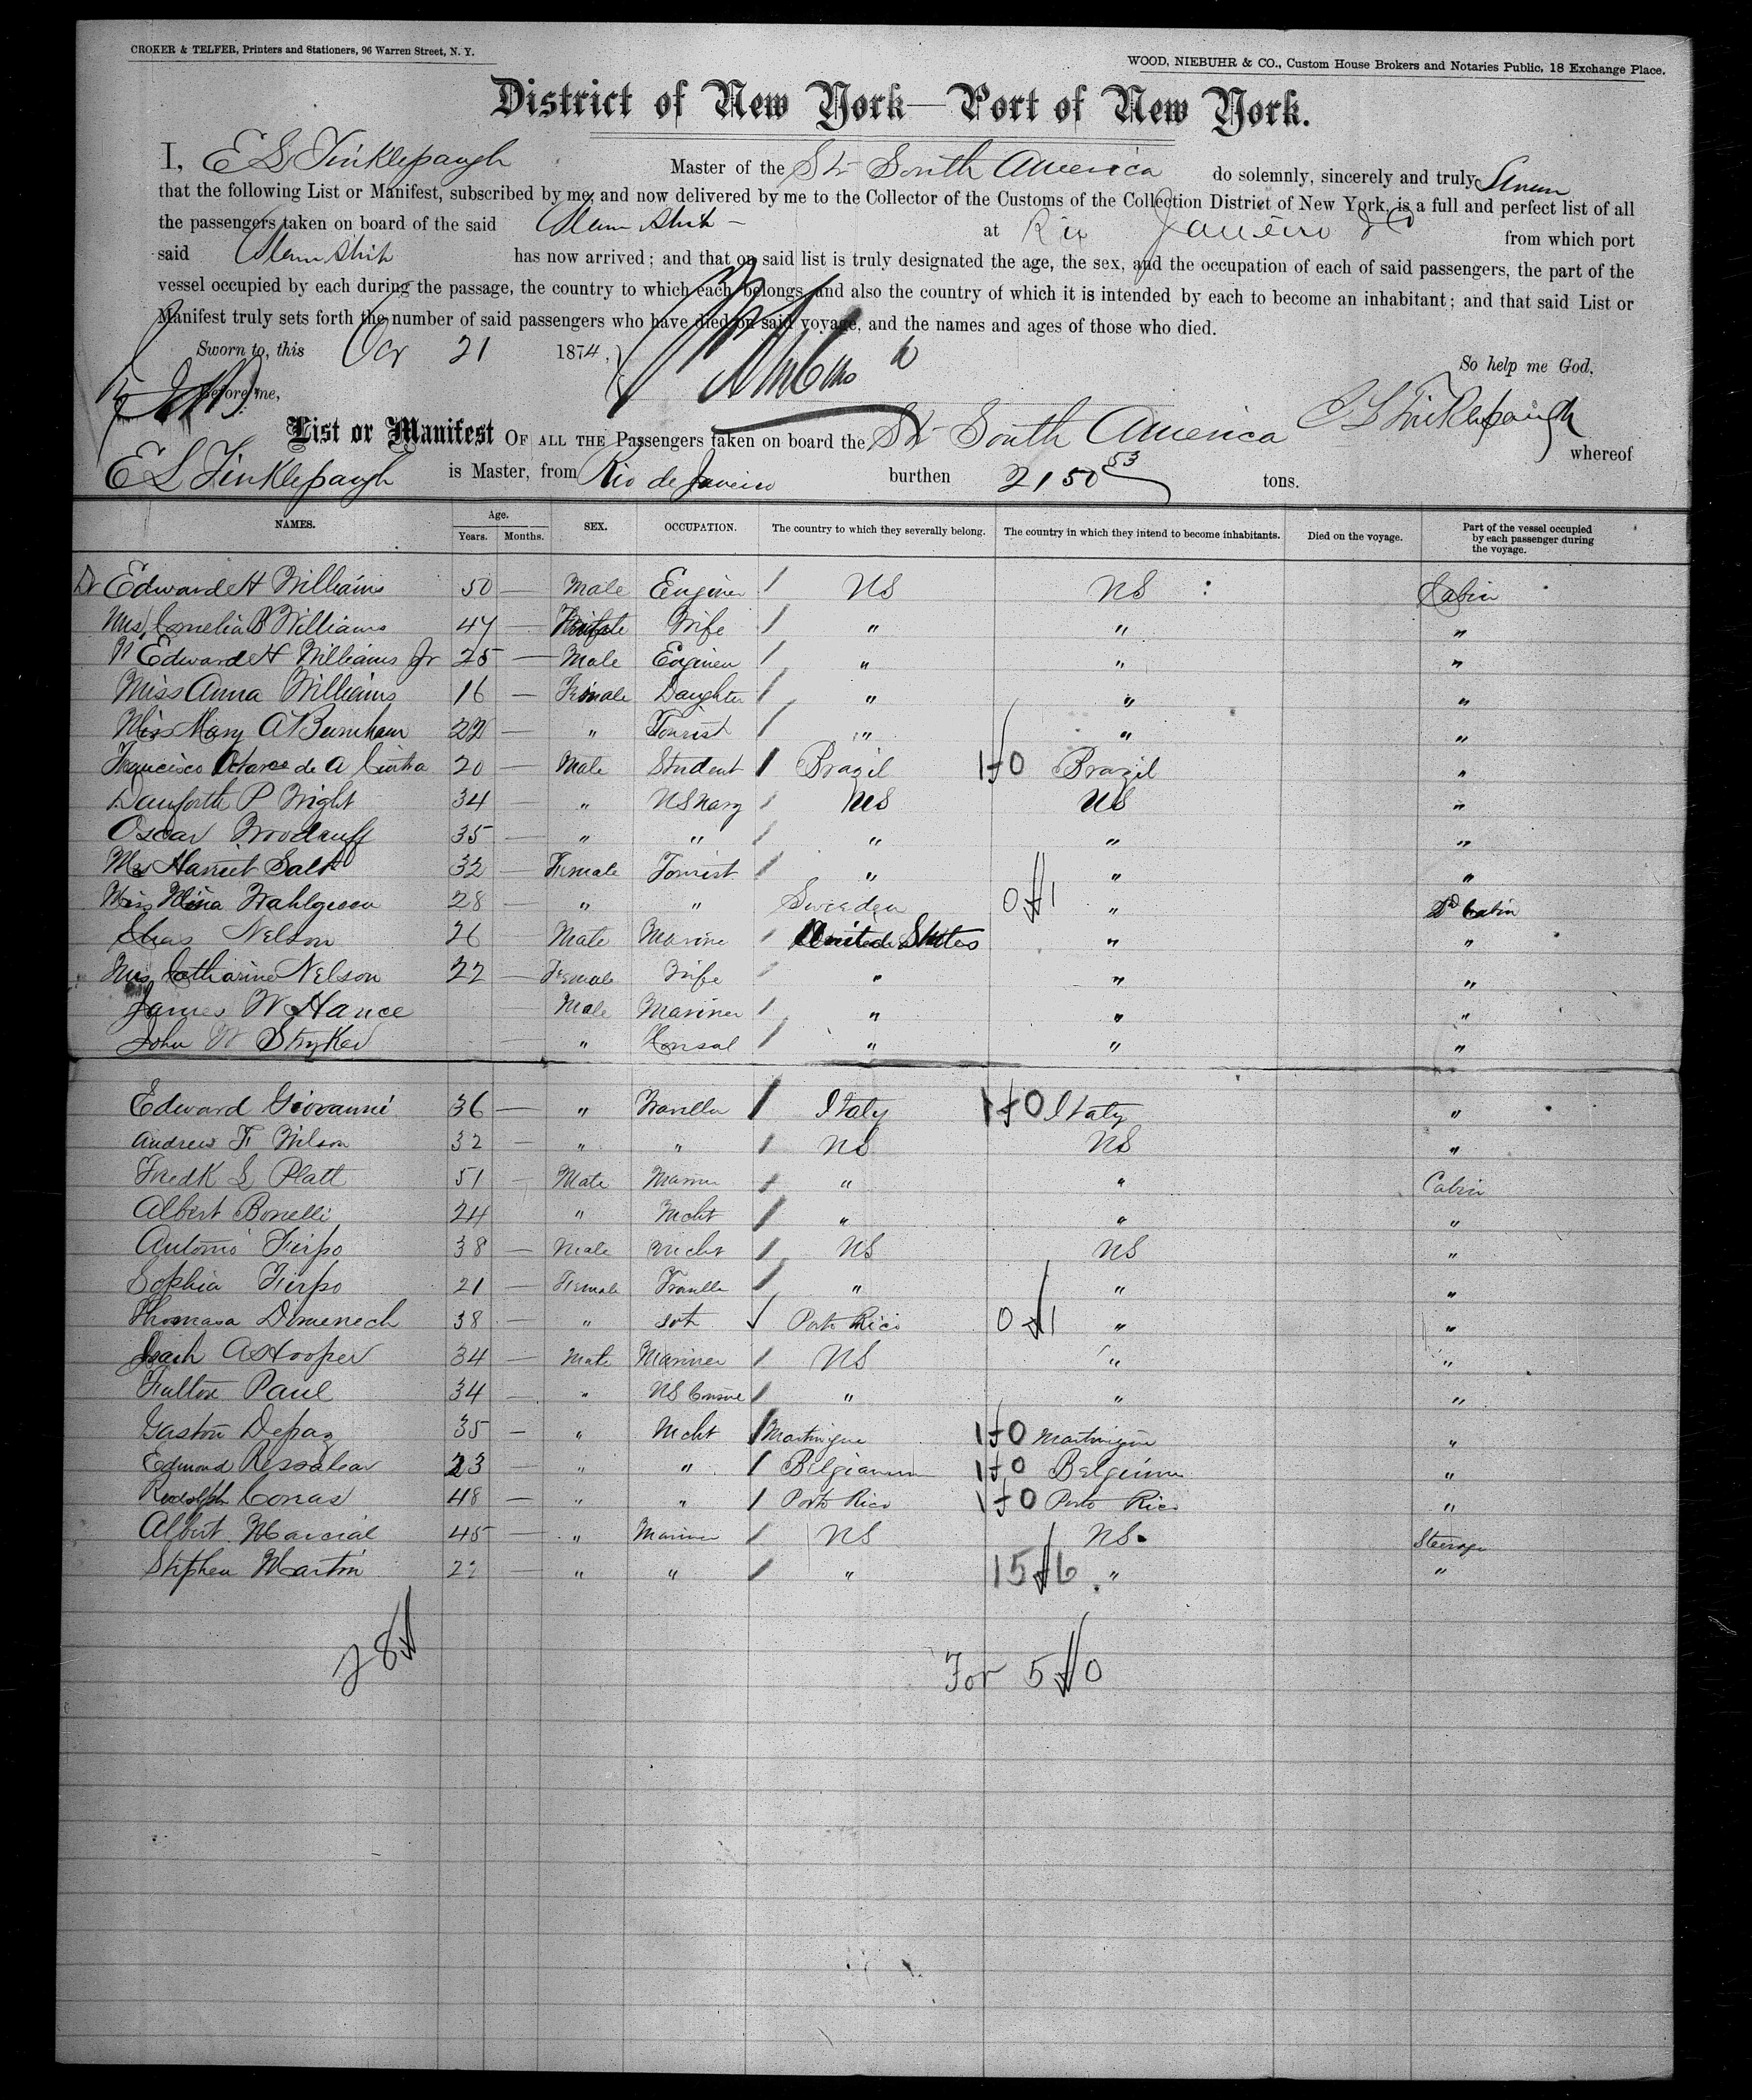 CROKER & TELFER, Printers and Stationers, 96 Warren Street, N. Y.
WOOD, NIEBUHR & CO., Custom House Brokers and Notaries Public, 18 Exchange Place.
District of New York—Port of New York.
I, E L Tinklepaugh Master of the Str South America do solemnly, sincerely and truly Swear
that the following List or Manifest, subscribed by me, and now delivered by me to the Collector of the Customs of the Collection District of New York, is a full and perfect list of all
the passengers taken on board of the said Steam Ship at Rio Janeiro from which port
said Steam Ship has now arrived; and that on said list is truly designated the age, the sex, and the occupation of each of said passengers, the part of the
vessel occupied by each during the passage, the country to which each belongs, and also the country of which it is intended by each to become an inhabitant; and that said List or
Manifest truly sets forth the number of said passengers who have died on said voyage, and the names and ages of those who died.
Sworn to, this Oct 21 1874, So help me God,
Before me, E L Tinklepaugh
List or Manifest OF ALL THE Passengers taken on board the Str South America whereof
E L Tinklepaugh is Master, from Rio de Janeiro burthen 2150 53 tons.
NAMES. Age. Years. Months. SEX. OCCUPATION. The country to which they severally belong. The country in which they intend to become inhabitants. Died on the voyage. Part of the vessel occupied by each passenger during the voyage.
Dr Edward H Williams 50 — Male Enginer / US US Cabin
Mrs Cornelia B Williams 47 — Female Wife / " " "
Edward H Williams Jr 25 — Male Enginer / " " "
Miss Anna Williams 16 — Female Daughter / " " "
Miss Mary A Burnham 22 — " Tourist / " " "
Francisco de A Cintra 20 — Male Student / Brazil 1 f 0 Brazil "
Danforth P Wright 34 — " US Navy / US US "
Oscar Woodruff 35 — " " / " " "
Harriet Salt 32 — Female Tourist / " " "
Miss Mina 28 — " " Sweeden 0 f 1 " 2d Cabin
Chas Nelson 26 — Male Marine / United States " "
Mrs Catharine Nelson 22 — Female Wife / " " "
James W Hance Male Mariner / " " "
John W Stryker " Consul / " " "
Edward Giovanni 36 — " Traveller / Italy 1 f 0 Italy "
Andrew F Wilson 32 — " " / US US "
Fredk L Platt 51 — Male / " " Cabin
Albert Bonelli 24 " Mcht / " " "
Antonio Firpo 38 — Male Mcht / US US "
Sophia Firpo 21 — Female / " " "
Thomasa Domenech 38 — " Porto Rico 0 f 1 " "
A Hooper 34 — Male Mariner / US " "
Fulton Paul 34 — " US Consul / " " "
Gaston Depaz 35 — " Mcht / Martinique 1 f 0 Martinique "
Edmond 23 — " " / Belgianm 1 f 0 Belgium "
Rudolph 48 — " " / Porto Rico 1 f 0 Porto Rico "
Albert Marcial 45 — " Mariner / US US Steerage
Stephen Martin — " " / " 15 f 6 " "
28
For 5 f 0